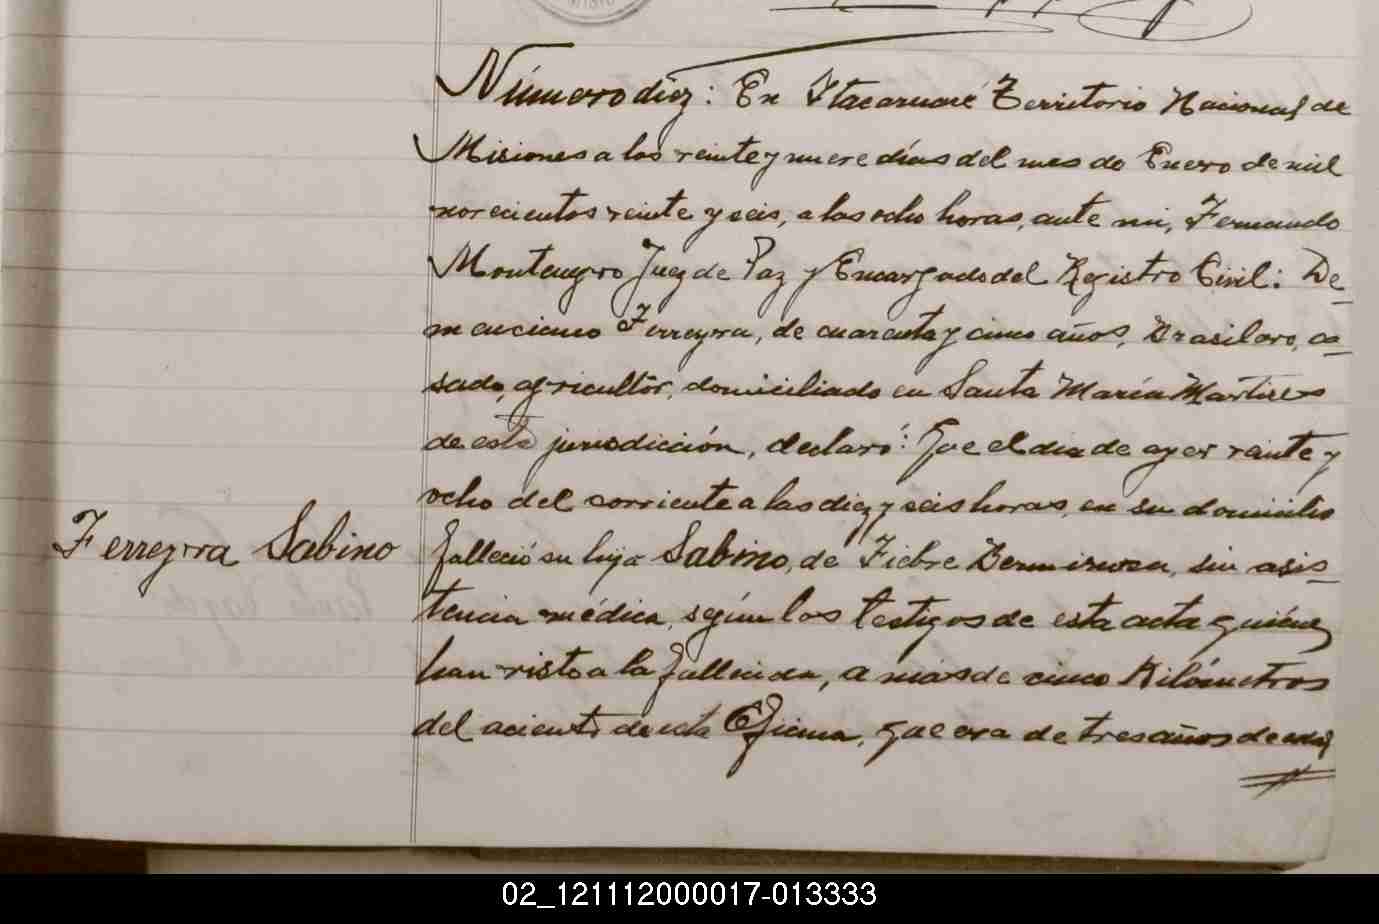 Número diez: En Itacaruaré Territorio Nacional de
Misiones a los veinte y nueve días del mes de Enero de mil
novecientos veinte y seis, a las ocho horas, ante mi, Fernando
Montenegro Juez de Paz y Encargado del Registro Civil: De-
manciano Ferreyra, de cuarenta y cinco años, Brasilero, ca-
sado, agricultor, domiciliado en Santa María Martires
de esta jurisdicción, declaró: Que el dia de ayer veinte y
ocho del corriente a las diez y seis horas, en su domicilio
Ferreyra Sabino
falleció su hija Sabino, de Fiebre sin asis-
tencia médica, según los testigos de esta acta quiénes
han visto a la fallecida, a mas de cinco Kilómetros
del aciento de esta Oficina, que era de tres años de edad
02_121112000017-013333